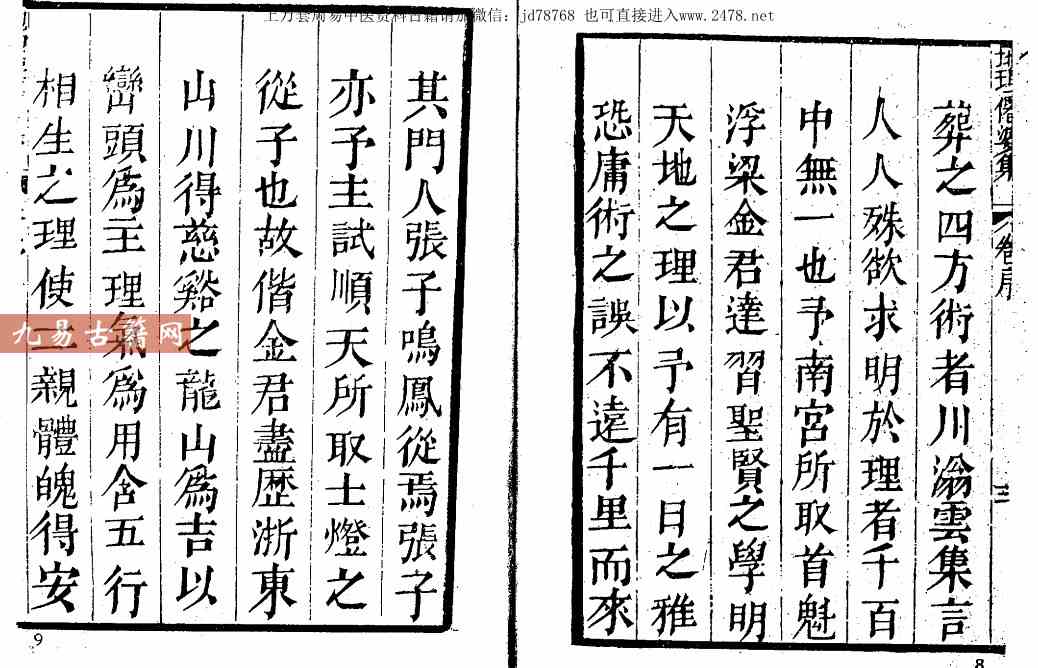 上万套周易中医资料古籍请加微信：jd78768 也可直接进入www.2478.net
葬之四方術者川滃雲集言
人人殊欲求明於理者千百
中無一也予南宮所取首魁
浮梁金君達習聖賢之學明
天地之理以予有一日之雅
恐庸術之誤不遠千里而來
8
其門人張子鳴鳳從焉張子
亦予主試順天所取士燈之
從子也故偕金君盡歷浙東
山川得慈谿之龍山爲吉以
巒頭爲主理氣爲用舍五行
相生之理使二親體魄得安
9
九易古籍网